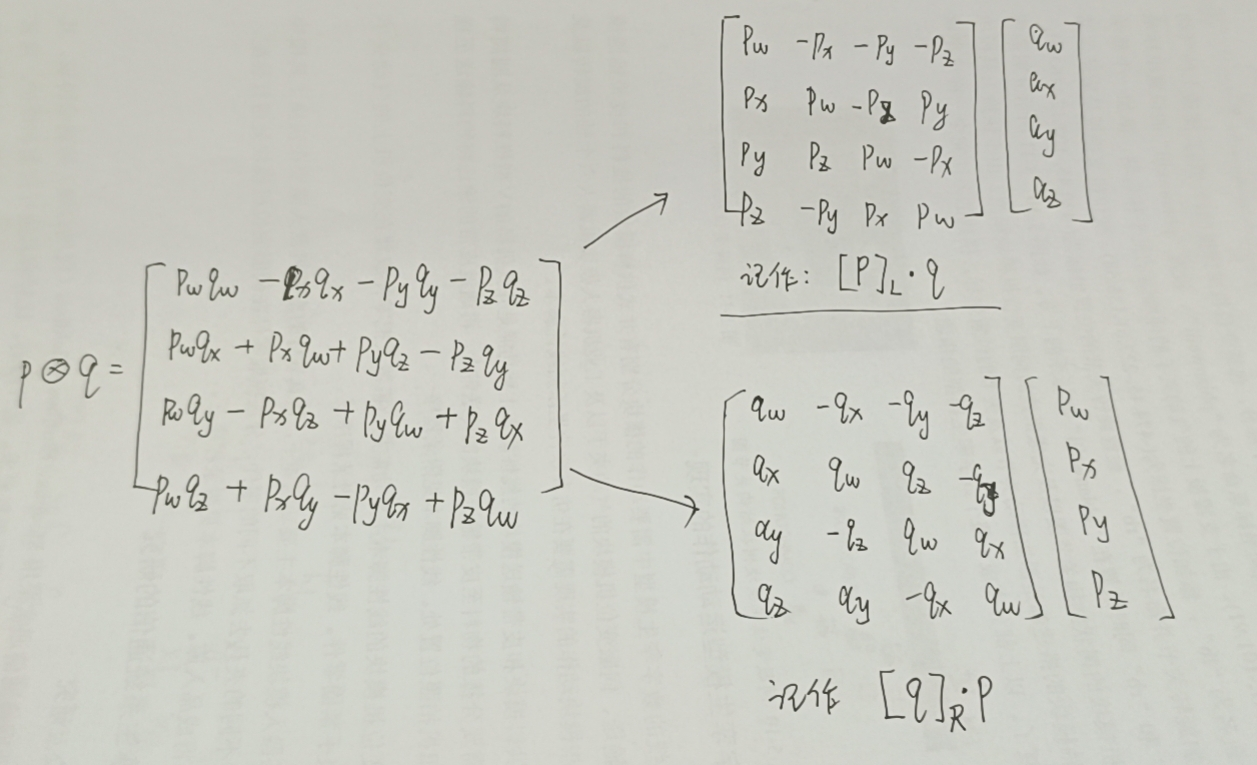 p ⊗ q =
p_w q_w - p_x q_x - p_y q_y - p_z q_z
p_w q_x + p_x q_w + p_y q_z - p_z q_y
p_w q_y - p_x q_z + p_y q_w + p_z q_x
p_w q_z + p_x q_y - p_y q_x + p_z q_w
p_w -p_x -p_y -p_z q_w
p_x p_w -p_z p_y q_x
p_y p_z p_w -p_x q_y
p_z -p_y p_x p_w q_z
记作: [P]_L · q
q_w -q_x -q_y -q_z p_w
q_x q_w q_z -q_y p_x
q_y -q_z q_w q_x p_y
q_z q_y -q_x q_w p_z
记作 [q]_R · P